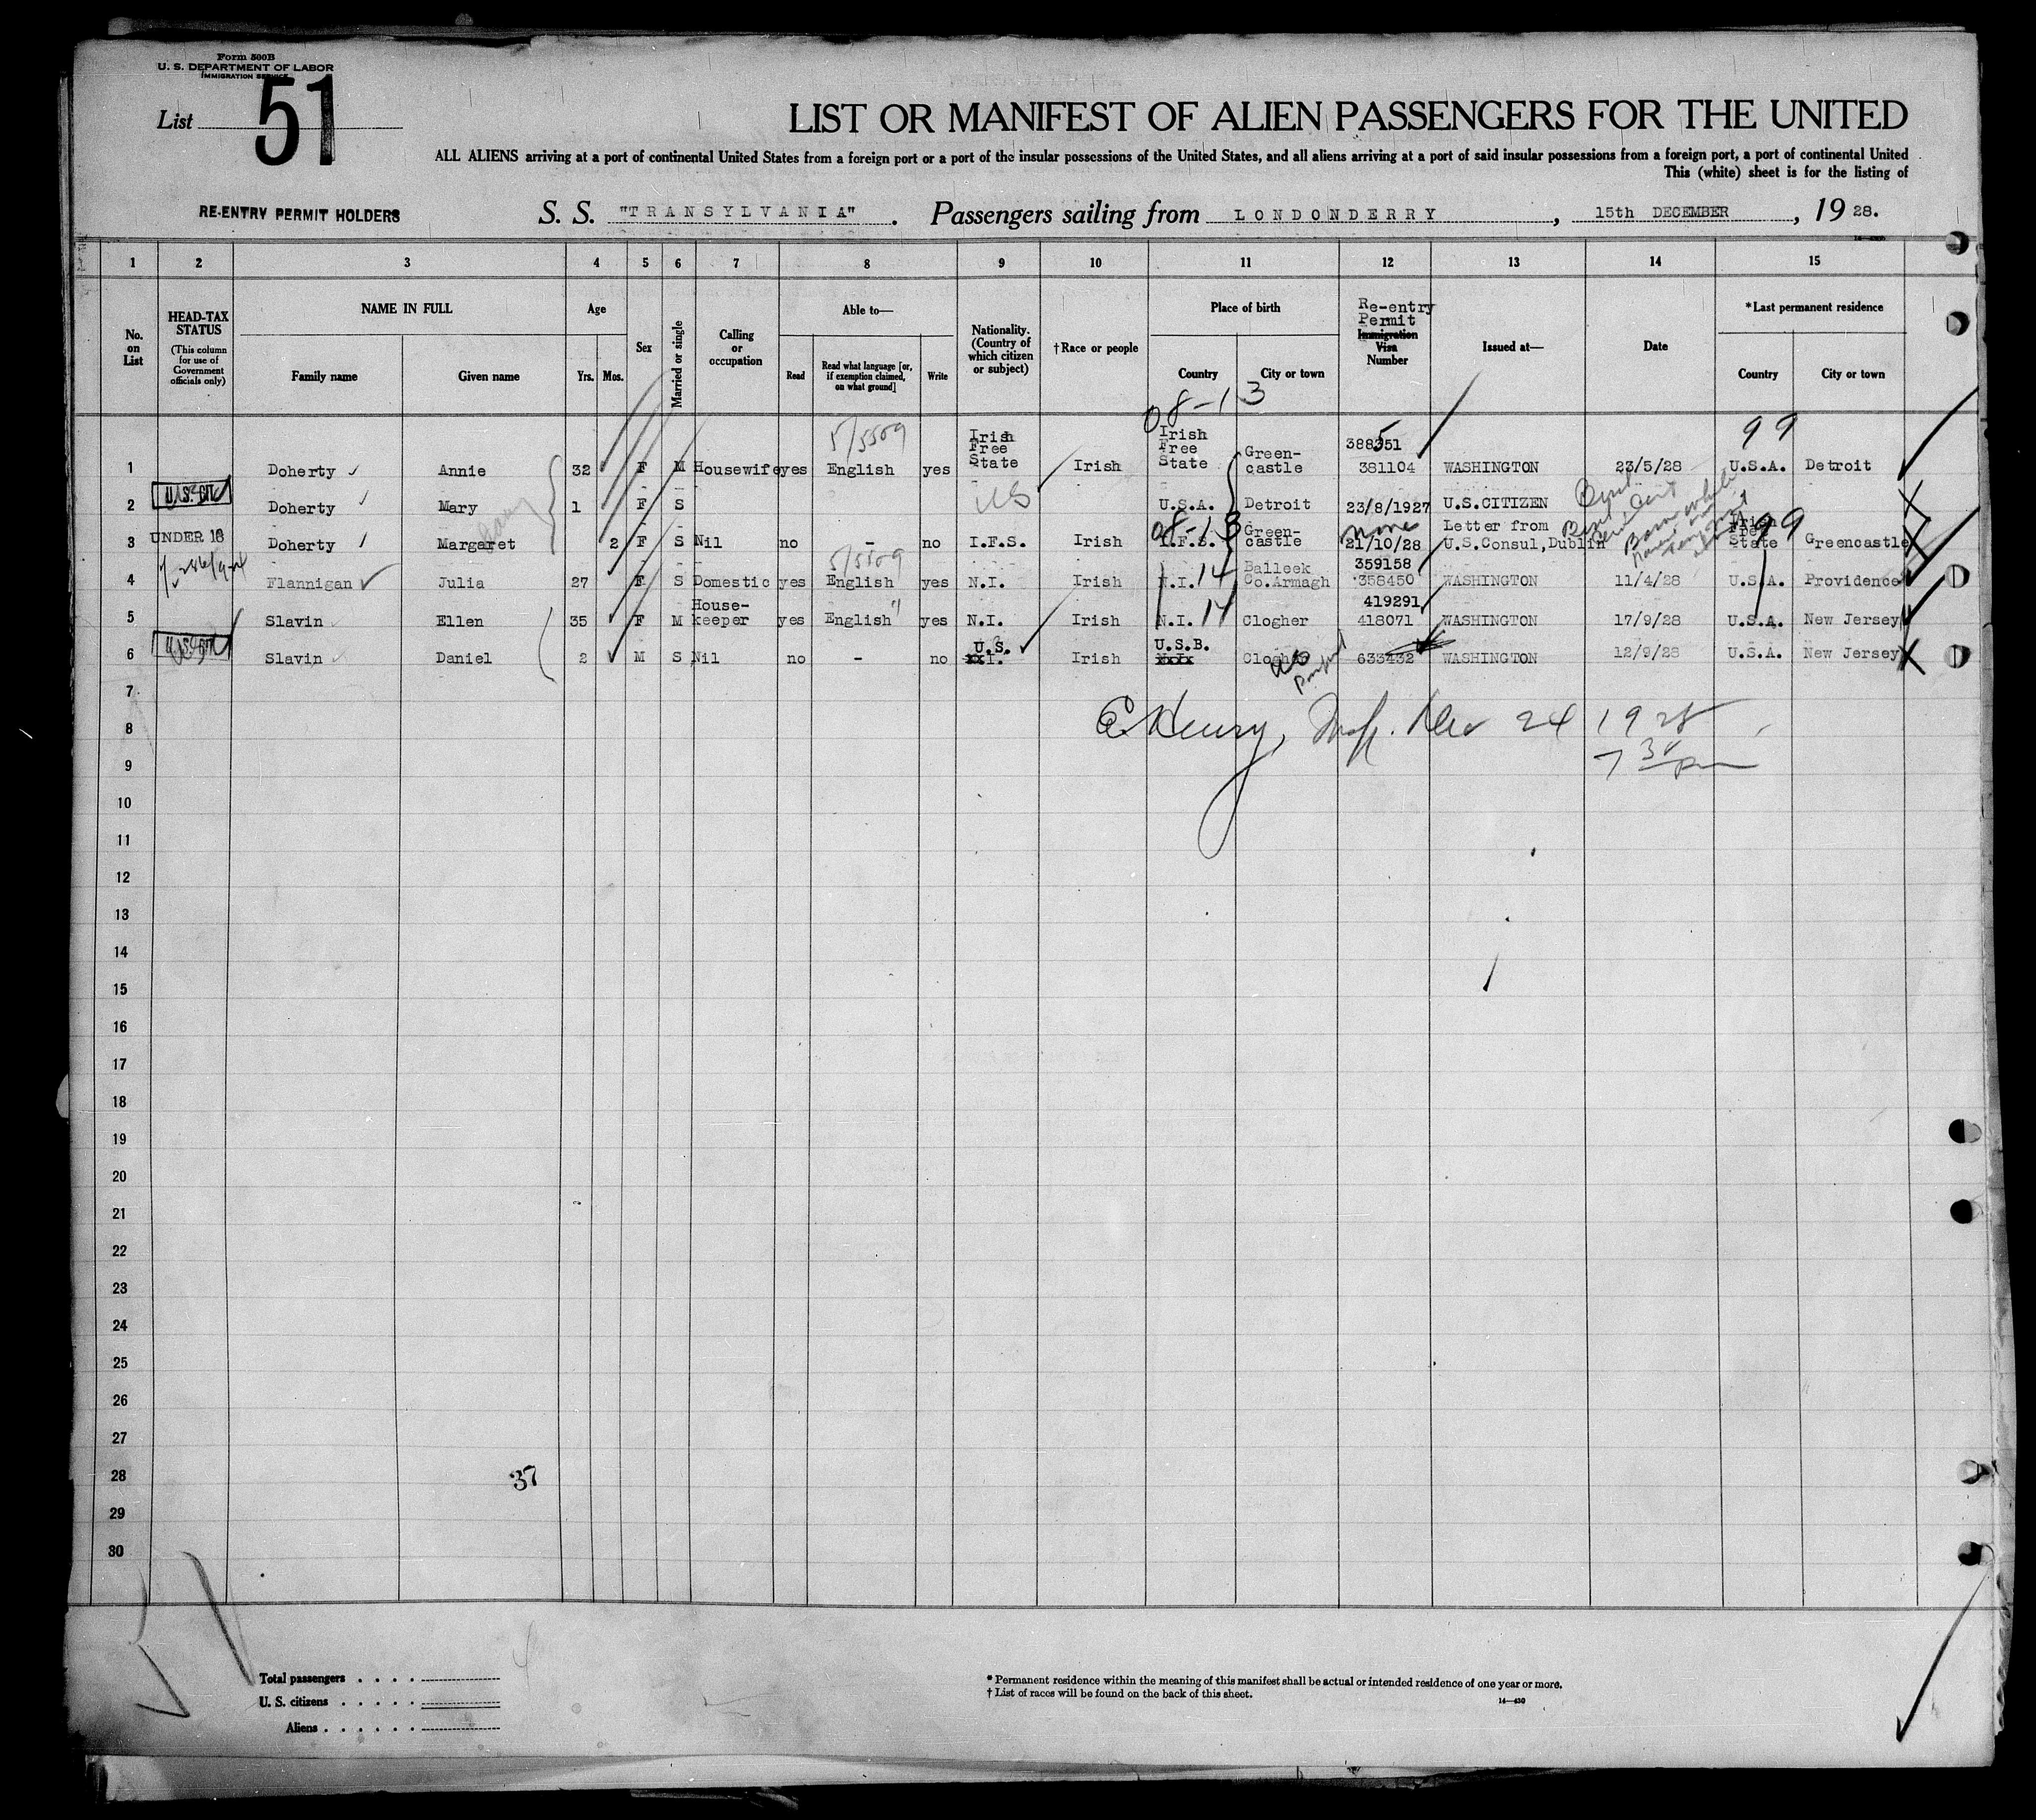 Form 500B
U. S. DEPARTMENT OF LABOR
IMMIGRATION SERVICE
List 51
LIST OR MANIFEST OF ALIEN PASSENGERS FOR THE UNITED
ALL ALIENS arriving at a port of continental United States from a foreign port or a port of the insular possessions of the United States, and all aliens arriving at a port of said insular possessions from a foreign port, a port of continental United
This (white) sheet is for the listing of
RE-ENTRY PERMIT HOLDERS
S. S. "TRANSYLVANIA". Passengers sailing from LONDONDERRY, 15th DECEMBER, 19 28.
1 2 3 4 5 6 7 8 9 10 11 12 13 14 15
No. on List
HEAD-TAX STATUS
(This column for use of Government officials only)
NAME IN FULL
Family name Given name
Age
Yrs. Mos.
Sex
Married or single
Calling or occupation
Able to—
Read
Read what language [or, if exemption claimed, on what ground]
Write
Nationality. (Country of which citizen or subject)
†Race or people
Place of birth
Country City or town
Re-entry Permit
Immigration Visa Number
Issued at—
Date
*Last permanent residence
Country City or town
08-13
5/5509 5 99
388351
1 Doherty Annie 32 F M Housewife yes English yes Irish Free State Irish Irish Free State Green-castle 381104 WASHINGTON 23/5/28 U.S.A. Detroit
U.S. CIT.
2 Doherty Mary 1 F S US U.S.A. Detroit 23/8/1927 U.S.CITIZEN
UNDER 16
08-13 none 99
3 Doherty Margaret 2 F S Nil no - no I.F.S. Irish I.F.S. Green-castle 21/10/28 Letter from U.S.Consul, Dublin Irish Free State Greencastle
5/5509
359158
4 Flannigan Julia 27 F S Domestic yes English yes N.I. Irish N.I. 14 Balleek Co.Armagh 358450 WASHINGTON 11/4/28 U.S.A. Providence
419291
5 Slavin Ellen 35 F M House-keeper yes English " yes N.I. Irish N.I. 14 Clogher 418071 WASHINGTON 17/9/28 U.S.A. New Jersey
6 Slavin Daniel 2 M S Nil no - no U.S. Irish U.S.B. Clogher 633432 WASHINGTON 12/9/28 U.S.A. New Jersey
7
8
E. Henry, Insp. Dec 24 1928
7 30 pm
9
10
11
12
13
14
15
16
17
18
19
20
21
22
23
24
25
26
27
28
37
29
30
Total passengers . . . .
4
U. S. citizens . . . . .
Aliens . . . . . .
* Permanent residence within the meaning of this manifest shall be actual or intended residence of one year or more.
† List of races will be found on the back of this sheet.
14—430